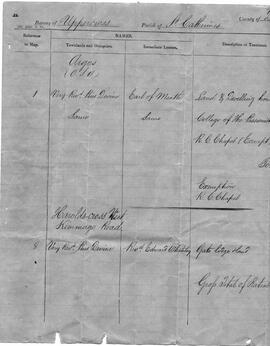 Barony of Uppercross Parish of St. Catherine's County of
Reference to Map.
NAMES.
Townlands and Occupiers.
Immediate Lessors.
Description of Tenement
Argos
1 Very Revd. Pius Devine Earl of Meath Land & Dwelling hou
Same Same College of the Passionis
R.C. Chapel & Exempt
Exemption
R.C. Chapel
Harolds-cross West
Kimmage Road
8 Very Revd. Pius Devine Revd. Edward Gate lodge &
Gross Total of Rateab